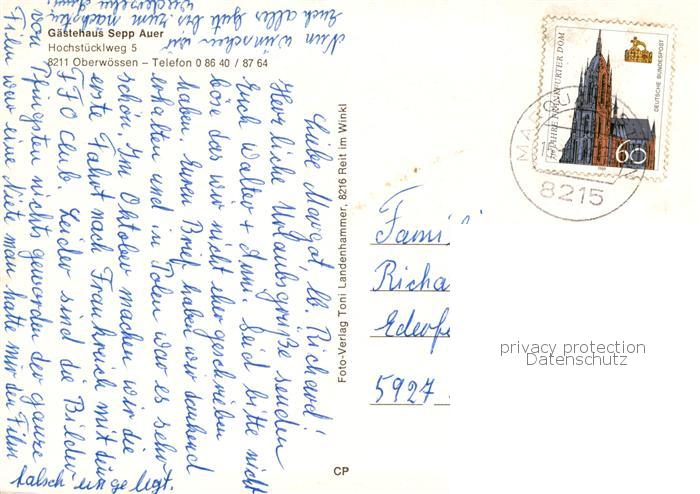 Gästehaus Sepp Auer
Hochstücklweg 5
8211 Oberwössen – Telefon 0 86 40 / 87 64
Liebe Margot, lb. Richard!
Herzliche Urlaubsgrüße senden
Euch Walter + Anni. Seid bitte nicht
böse das wir nicht eher geschrieben
haben. Euren Brief haben wir dankend
erhalten und in Polen war es sehr
schön. Im Oktober machen wir die
erste Fahrt nach Frankreich mit dem
FFO Club. Leider sind die Bilder
von Pfingsten nichts geworden der ganze
Film war eine Niete man hatte mir den Film
falsch eingelegt.
Nun wünschen wir
Euch alles Gute bis zum nächsten
Wiedersehn
Foto-Verlag Toni Landenhammer, 8216 Reit im Winkl
CP
JAHRE FRANKFURTER DOM
DEUTSCHE BUNDESPOST
60
8215
Fami
Richa
Ederfe
5927
privacy protection
Datenschutz